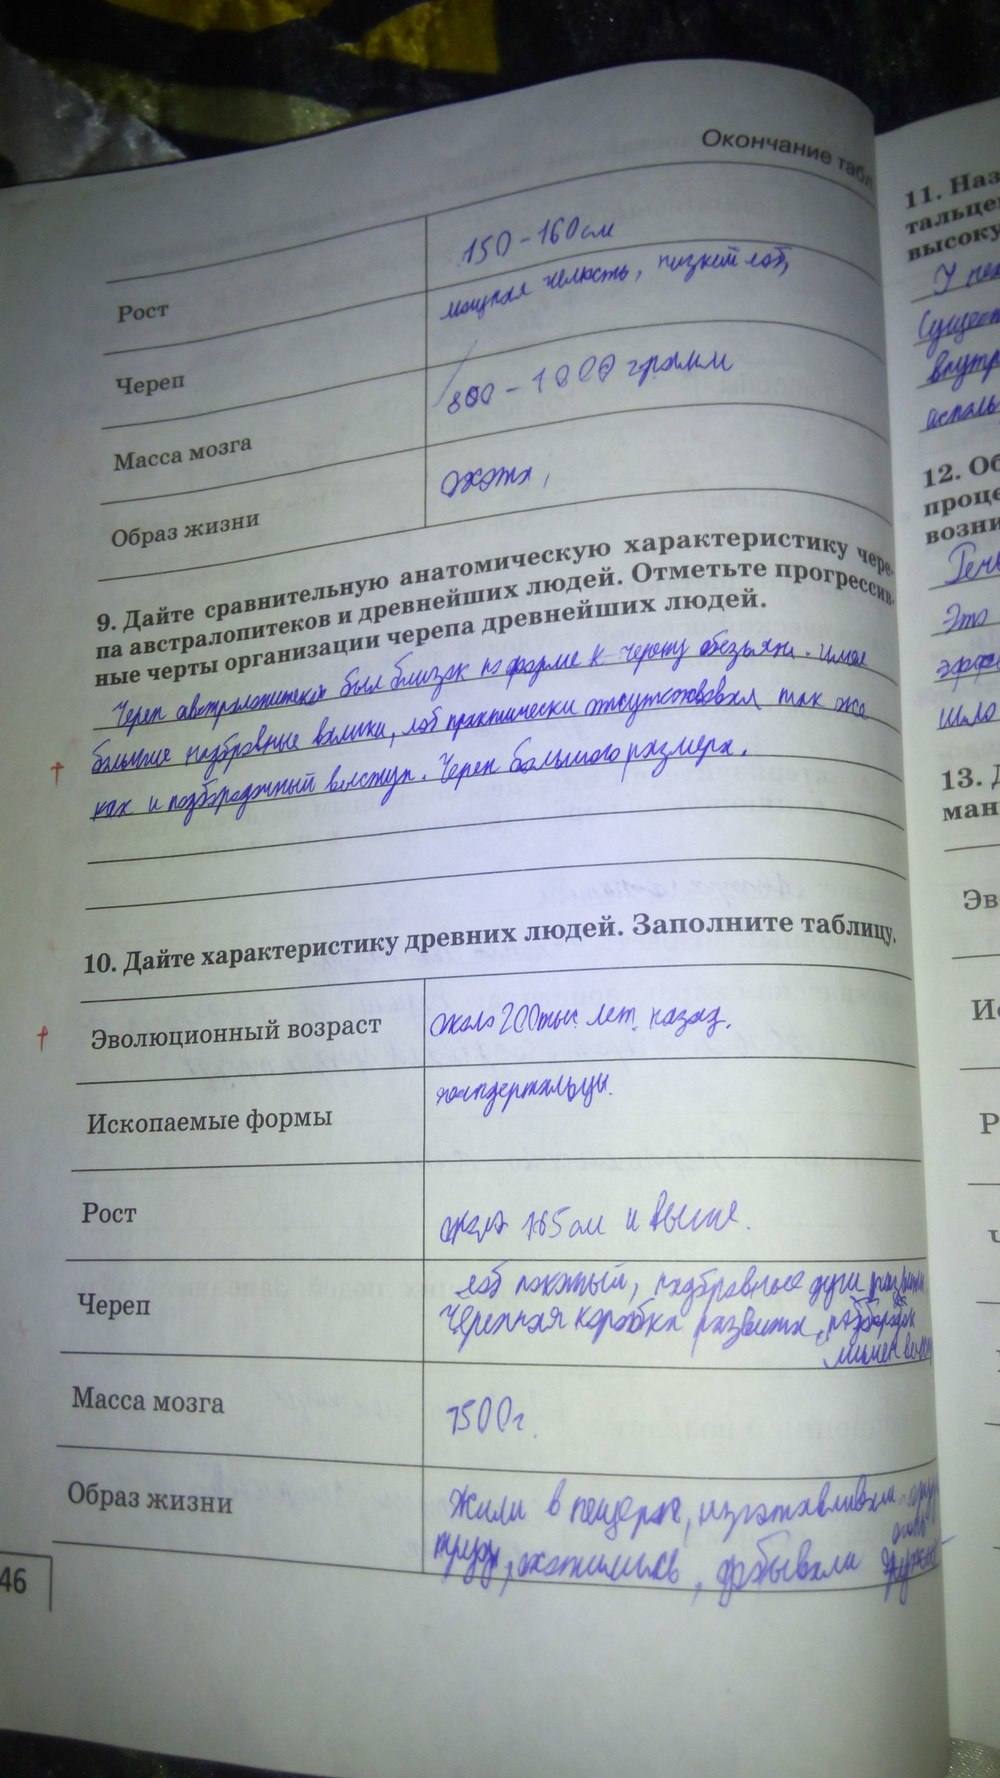 Окончание табл
Рост
150 - 160 см
Череп
мощная челюсть, низкий лоб,
Масса мозга
800 - 1000 грамм
Образ жизни
охота,
9. Дайте сравнительную анатомическую характеристику чере-
па австралопитеков и древнейших людей. Отметьте прогрессив-
ные черты организации черепа древнейших людей.
Череп австралопитека был близок по форме к черепу обезьян. имел
большие надбровные валики, лоб практически отсутствовал так же
как и подбородочный выступ. Череп большого размера.
10. Дайте характеристику древних людей. Заполните таблицу.
Эволюционный возраст
около 200 тыс. лет назад.
Ископаемые формы
неандертальцы.
Рост
около 165 см и выше.
Череп
лоб покатый, надбровные дуги
черепная коробка развита, подбородок
Масса мозга
1500 г.
Образ жизни
Жили в пещерах, изготавливали
труда, охотились, добывали огонь
46
11. Наз
тальце
высоку
У
Сущест
внутр
исполь
12. Об
проце
возни
Речь
Это
эффе
шло
13. Д
ман
Эв
Ис
Р